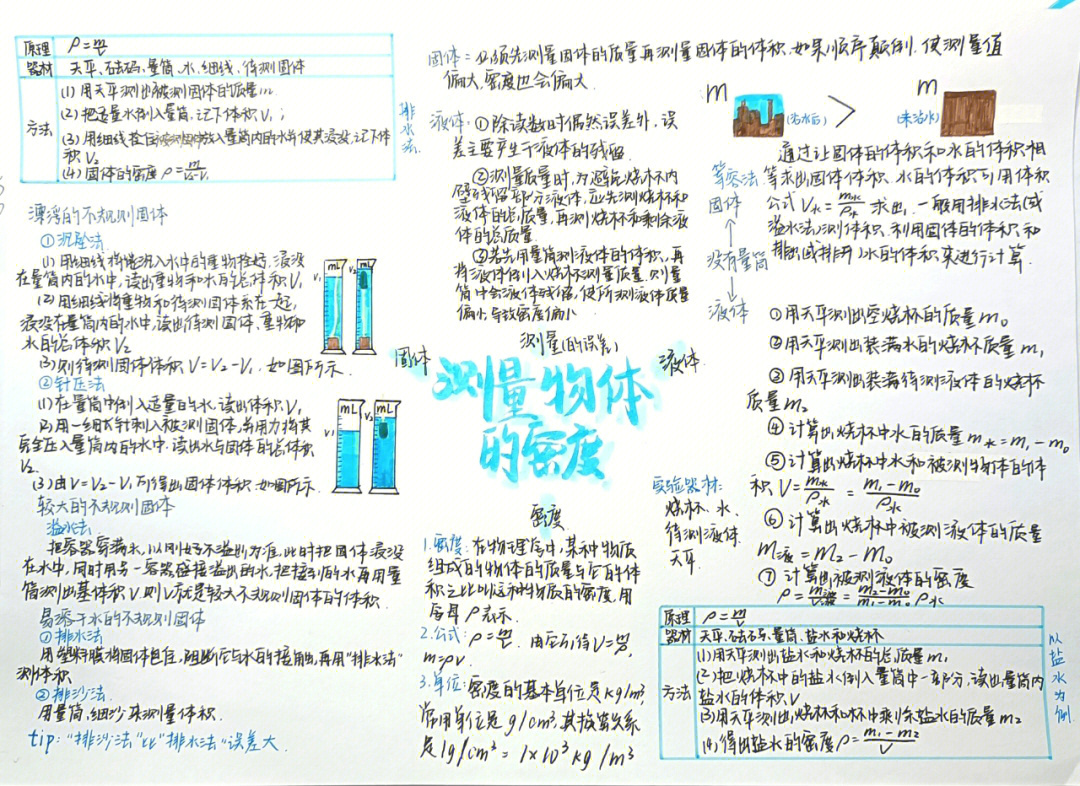 原理 ρ=m/V
器材 天平、砝码、量筒、水、细线、待测固体
方法
(1)用天平测出被测固体的质量m
(2)把适量水倒入量筒,记下体积V₁;
(3)用细线拴住被测固体放入量筒内的水中使其浸没,记下体
积V₂
(4)固体的密度ρ=m/V₂-V₁
排水法
漂浮的不规则固体
①沉坠法
(1)用细线将能沉入水中的重物拴好,浸没
在量筒内的水中,读出重物和水的总体积V₁
(2)用细线将重物和待测固体系在一起,
浸没在量筒内的水中,读出待测固体,重物和
水的总体积V₂
(3)则待测固体体积V=V₂-V₁.如图所示.
V₁ mL V₂ mL
②针压法
(1)在量筒中倒入适量的水,读出体积V₁
(2)用一细长针刺入被测固体,并用力将其
完全压入量筒内的水中.读出水与固体的总体积
V₂.
(3)由V=V₂-V₁可得出固体体积.如图所示.
V₁ mL V₂ mL
较大的不规则固体
溢水法
把容器穿满水,以刚好不溢出为准,此时把固体浸没
在水中,同时用另一容器盛接溢出的水,把接到的水再用量
筒测出其体积V.则V就是较大不规则固体的体积
易溶于水的不规则固体
①排水法
用塑料膜将固体包住,阻断它与水的接触,再用“排水法”
测体积
②排沙法
用量筒、细沙来测量体积.
tip:“排沙法”比“排水法”误差大.
固体:必须先测量固体的质量再测量固体的体积.如果顺序颠倒.使测量值
偏大,密度也会偏大.
m (沾水后) > m (未沾水)
液体:①除读数时偶然误差外,误
差主要产生于液体的残留.
②测量质量时,为避免烧杯内
壁残留部分液体,应先测烧杯和
液体的总质量,再测烧杯和剩余液
体的总质量
③若先用量筒测液体的体积,再
将液体倒入烧杯测量质量.则量
筒中会液体残留,使所测液体质量
偏小,导致密度偏小
测量(的误差)
固体
液体
测量物体
的密度
密度
1.密度:在物理学中,某种物质
组成的物体的质量与它的体
积之比叫这种物质的密度.用
字母ρ表示.
2.公式:ρ=m/V.由它可得V=m/ρ,
m=ρV.
3.单位:密度的基本单位是kg/m³,
常用单位是g/cm³,其换算关系
是1g/cm³=1×10³kg/m³
通过让固体的体积和水的体积相
等容法:等求出固体体积.水的体积可用体积
固体 公式V水=m水/ρ水求出.一般用排水法(或
溢水法)测体积.利用固体的体积和
没有量筒 排出(或排开)水的体积来进行计算.
液体
①用天平测出空烧杯的质量m₀
②用天平测出装满水的烧杯质量m₁
③用天平测出装满待测液体的烧杯
质量m₂
④计算出烧杯中水的质量m水=m₁-m₀
⑤计算出烧杯中水和被测物体的体
积V=m水/ρ水=m₁-m₀/ρ水
⑥计算出烧杯中被测液体的质量
m液=m₂-m₀
⑦计算出被测液体的密度
ρ=m液/V液=m₂-m₀/m₁-m₀ρ水
实验器材:
烧杯、水、
待测液体、
天平
原理 ρ=m/V
器材 天平、砝码、量筒、盐水和烧杯
方法
(1)用天平测出盐水和烧杯的总质量m₁
(2)把烧杯中的盐水倒入量筒中一部分,读出量筒内
盐水的体积V
(3)用天平测出烧杯和杯中剩余盐水的质量m₂
(4)得出盐水的密度ρ=m₁-m₂/V
以盐水为例